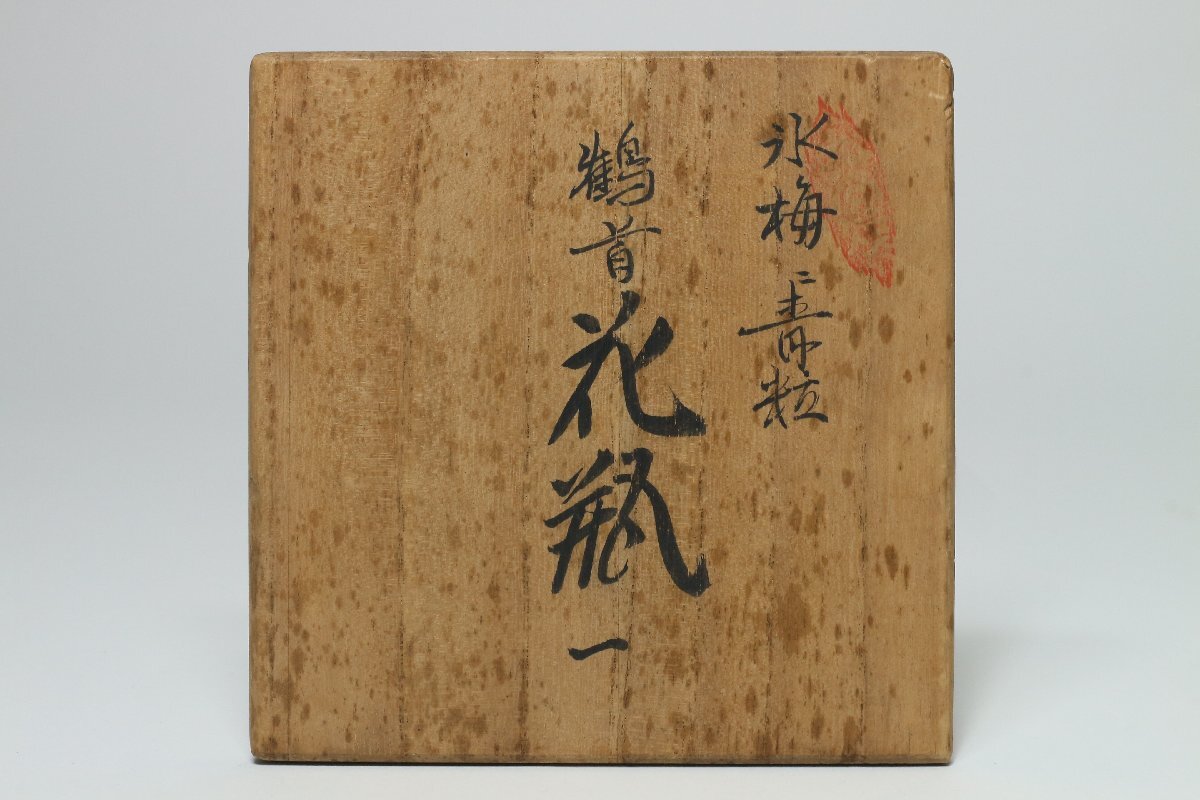 氷梅ニ青粒
鶴首花瓶 一